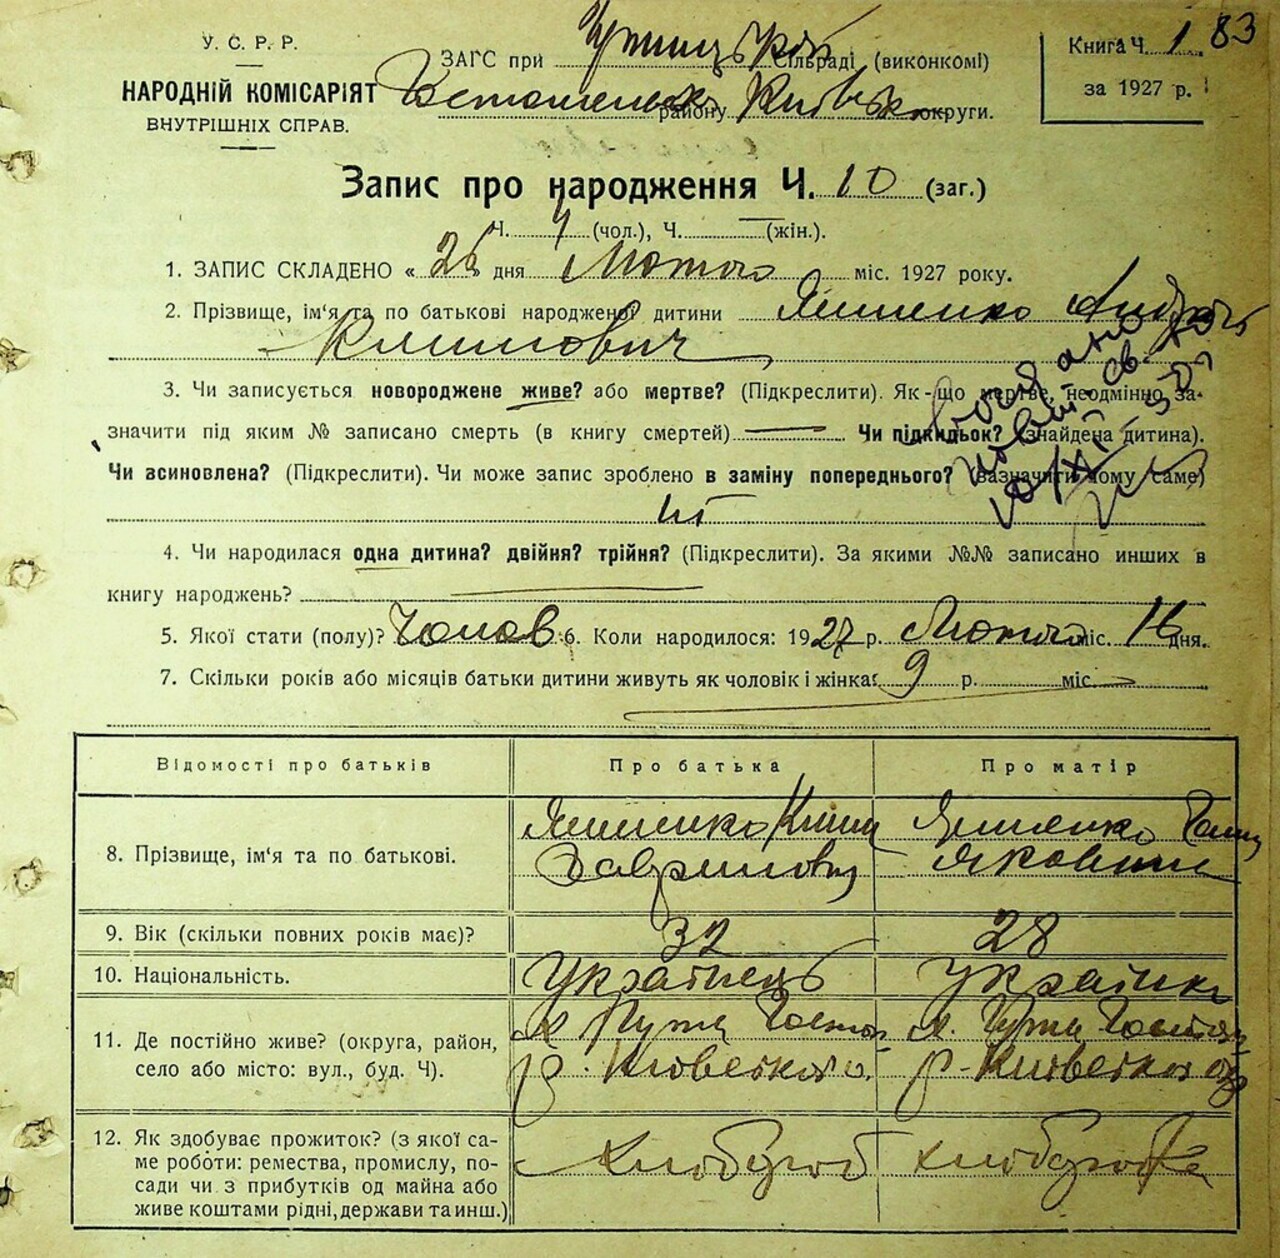 У. С. Р. Р.
НАРОДНІЙ КОМІСАРІЯТ
ВНУТРІШНІХ СПРАВ.
ЗАГС при Сільраді (виконкомі)
району округи.
Книга Ч. 1 83
за 1927 р.
Запис про народження Ч. 10 (заг.)
Ч. 7 (чол.), Ч. — (жін.).
1. ЗАПИС СКЛАДЕНО « 26 » дня Лютого міс. 1927 року.
2. Прізвище, ім'я та по батькові народженої дитини Яшненко Андрій
Климович
3. Чи записується новороджене живе? або мертве? (Підкреслити). Як-що мертве, неодмінно за-
значити під яким № записано смерть (в книгу смертей) — Чи підкидьок? (знайдена дитина).
Чи всиновлена? (Підкреслити). Чи може запис зроблено в заміну попереднього? (зазначити чому саме)
ні
4. Чи народилася одна дитина? двійня? трійня? (Підкреслити). За якими №№ записано инших в
книгу народжень? —
5. Якої стати (полу)? Чолов 6. Коли народилося: 1927 р. Лютого міс. 16 дня.
7. Скільки років або місяців батьки дитини живуть як чоловік і жінка? 9 р. міс. —
Відомості про батьків Про батька Про матір
8. Прізвище, ім'я та по батькові.
Клим
Гаврилович
Яковлівна
9. Вік (скільки повних років має)? 32 28
10. Національність. Українець Українка
11. Де постійно живе? (округа, район,
село або місто: вул., буд. Ч).
р. Київського о. р. Київської
12. Як здобуває прожиток? (з якої са-
ме роботи: ремества, промислу, по-
сади чи з прибутків од майна або
живе коштами рідні, держави та инш.)
хлібороб хлібороб